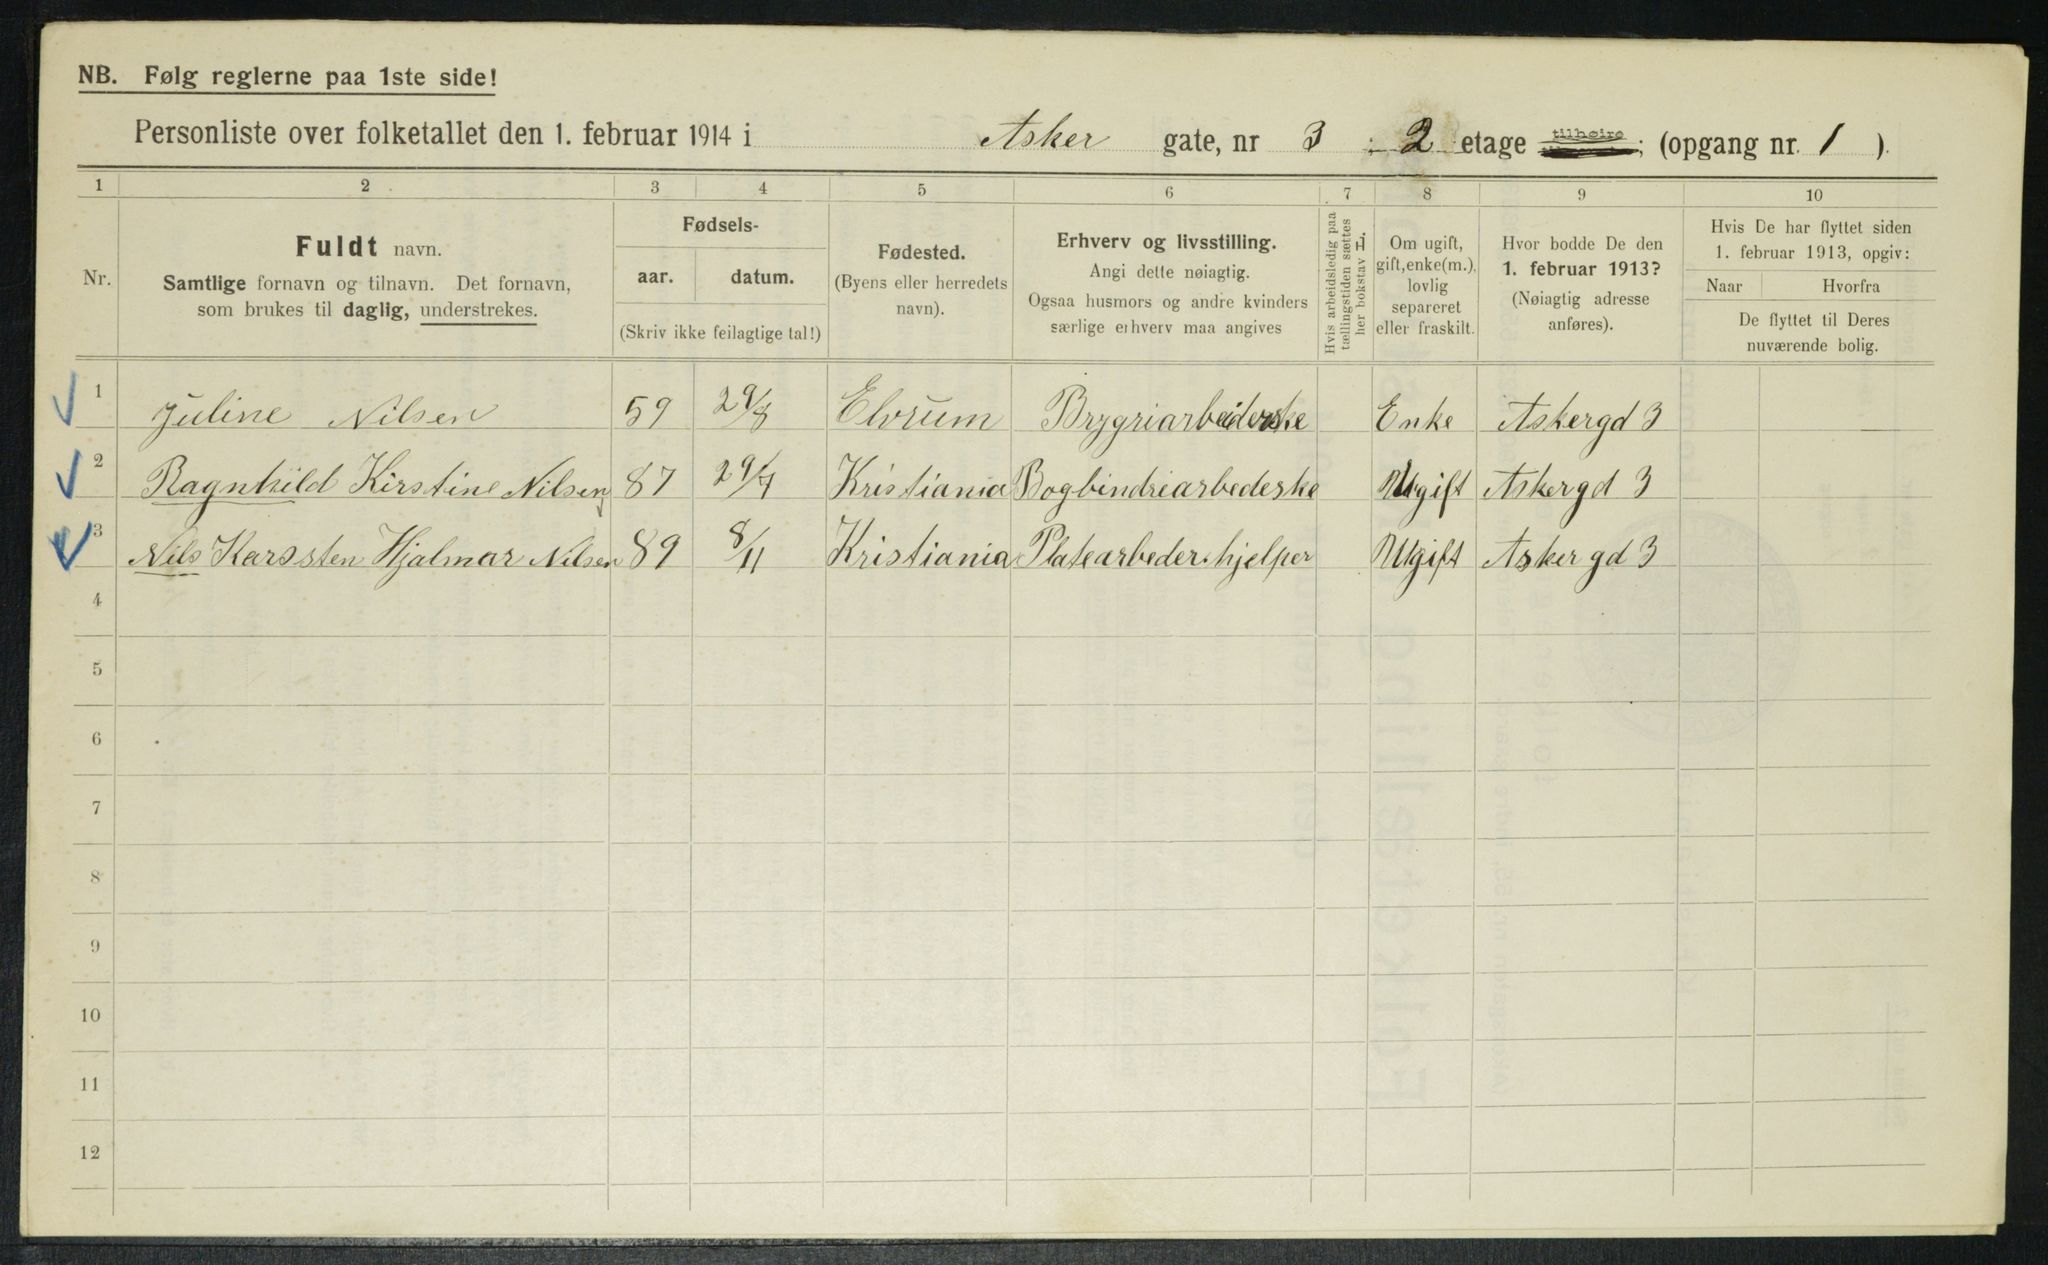 NB. Følg reglerne paa 1ste side!
Personliste over folketallet den 1. februar 1914 i Asker gate, nr 3 ; 2 etage tilhøire ; (opgang nr. 1 ).
1 2 3 4 5 6 7 8 9 10
Nr.
Fuldt navn.
Samtlige fornavn og tilnavn. Det fornavn,
som brukes til daglig, understrekes.
Fødsels-
aar. datum.
(Skriv ikke feilagtige tal!)
Fødested.
(Byens eller herredets
navn).
Erhverv og livsstilling.
Angi dette nøiagtig.
Ogsaa husmors og andre kvinders
særlige erhverv maa angives
Hvis arbeidsledig paa
tællingstiden sættes
her bokstav L.
Om ugift,
gift, enke(m.),
lovlig
separeret
eller fraskilt.
Hvor bodde De den
1. februar 1913?
(Nøiagtig adresse
anføres).
Hvis De har flyttet siden
1. februar 1913, opgiv:
Naar Hvorfra
De flyttet til Deres
nuværende bolig.
1 Juline Nilsen 59 29/8 Elvrum Brygriarbeiderske Enke Askergd 3
2 Ragnhild Kirstine Nilsen 87 29/7 Kristiania Bogbindriarbederske Ugift Askergd 3
3 Nils Karssten Hjalmar Nilsen 89 8/11 Kristiania Platearbeders hjelper Ugift Asker gd 3
4
5
6
7
8
9
10
11
12